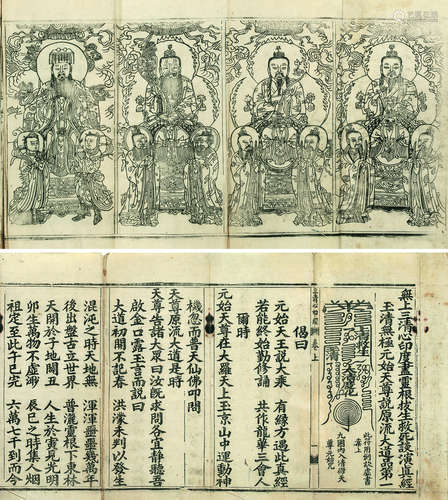 無上三清心印度畫靈根拔生救死談演真經
玉清無極元始天尊說原流大道品第一
偈曰
元始天王說大乘 有緣方遇此真經
若能終始勤修誦 共作龍華三會人
爾時
元始天尊在大羅天上玉京山中運動神
機忽而普天仙佛叩問
天尊原流大道是時
天尊告諸大眾曰汝既求問各宜靜聽吾
啟金口露玉言而說曰
大道初開不記春 洪濛未判以發生
混沌之時天地無 渾渾靈靈幾萬年
後出盤古立世界 普灑靈根下東林
天開於子地闢丑 人生於寅見光明
卯生萬物不虛渺 辰巳之時集人烟
祖定至此午已完 六萬七千到而今